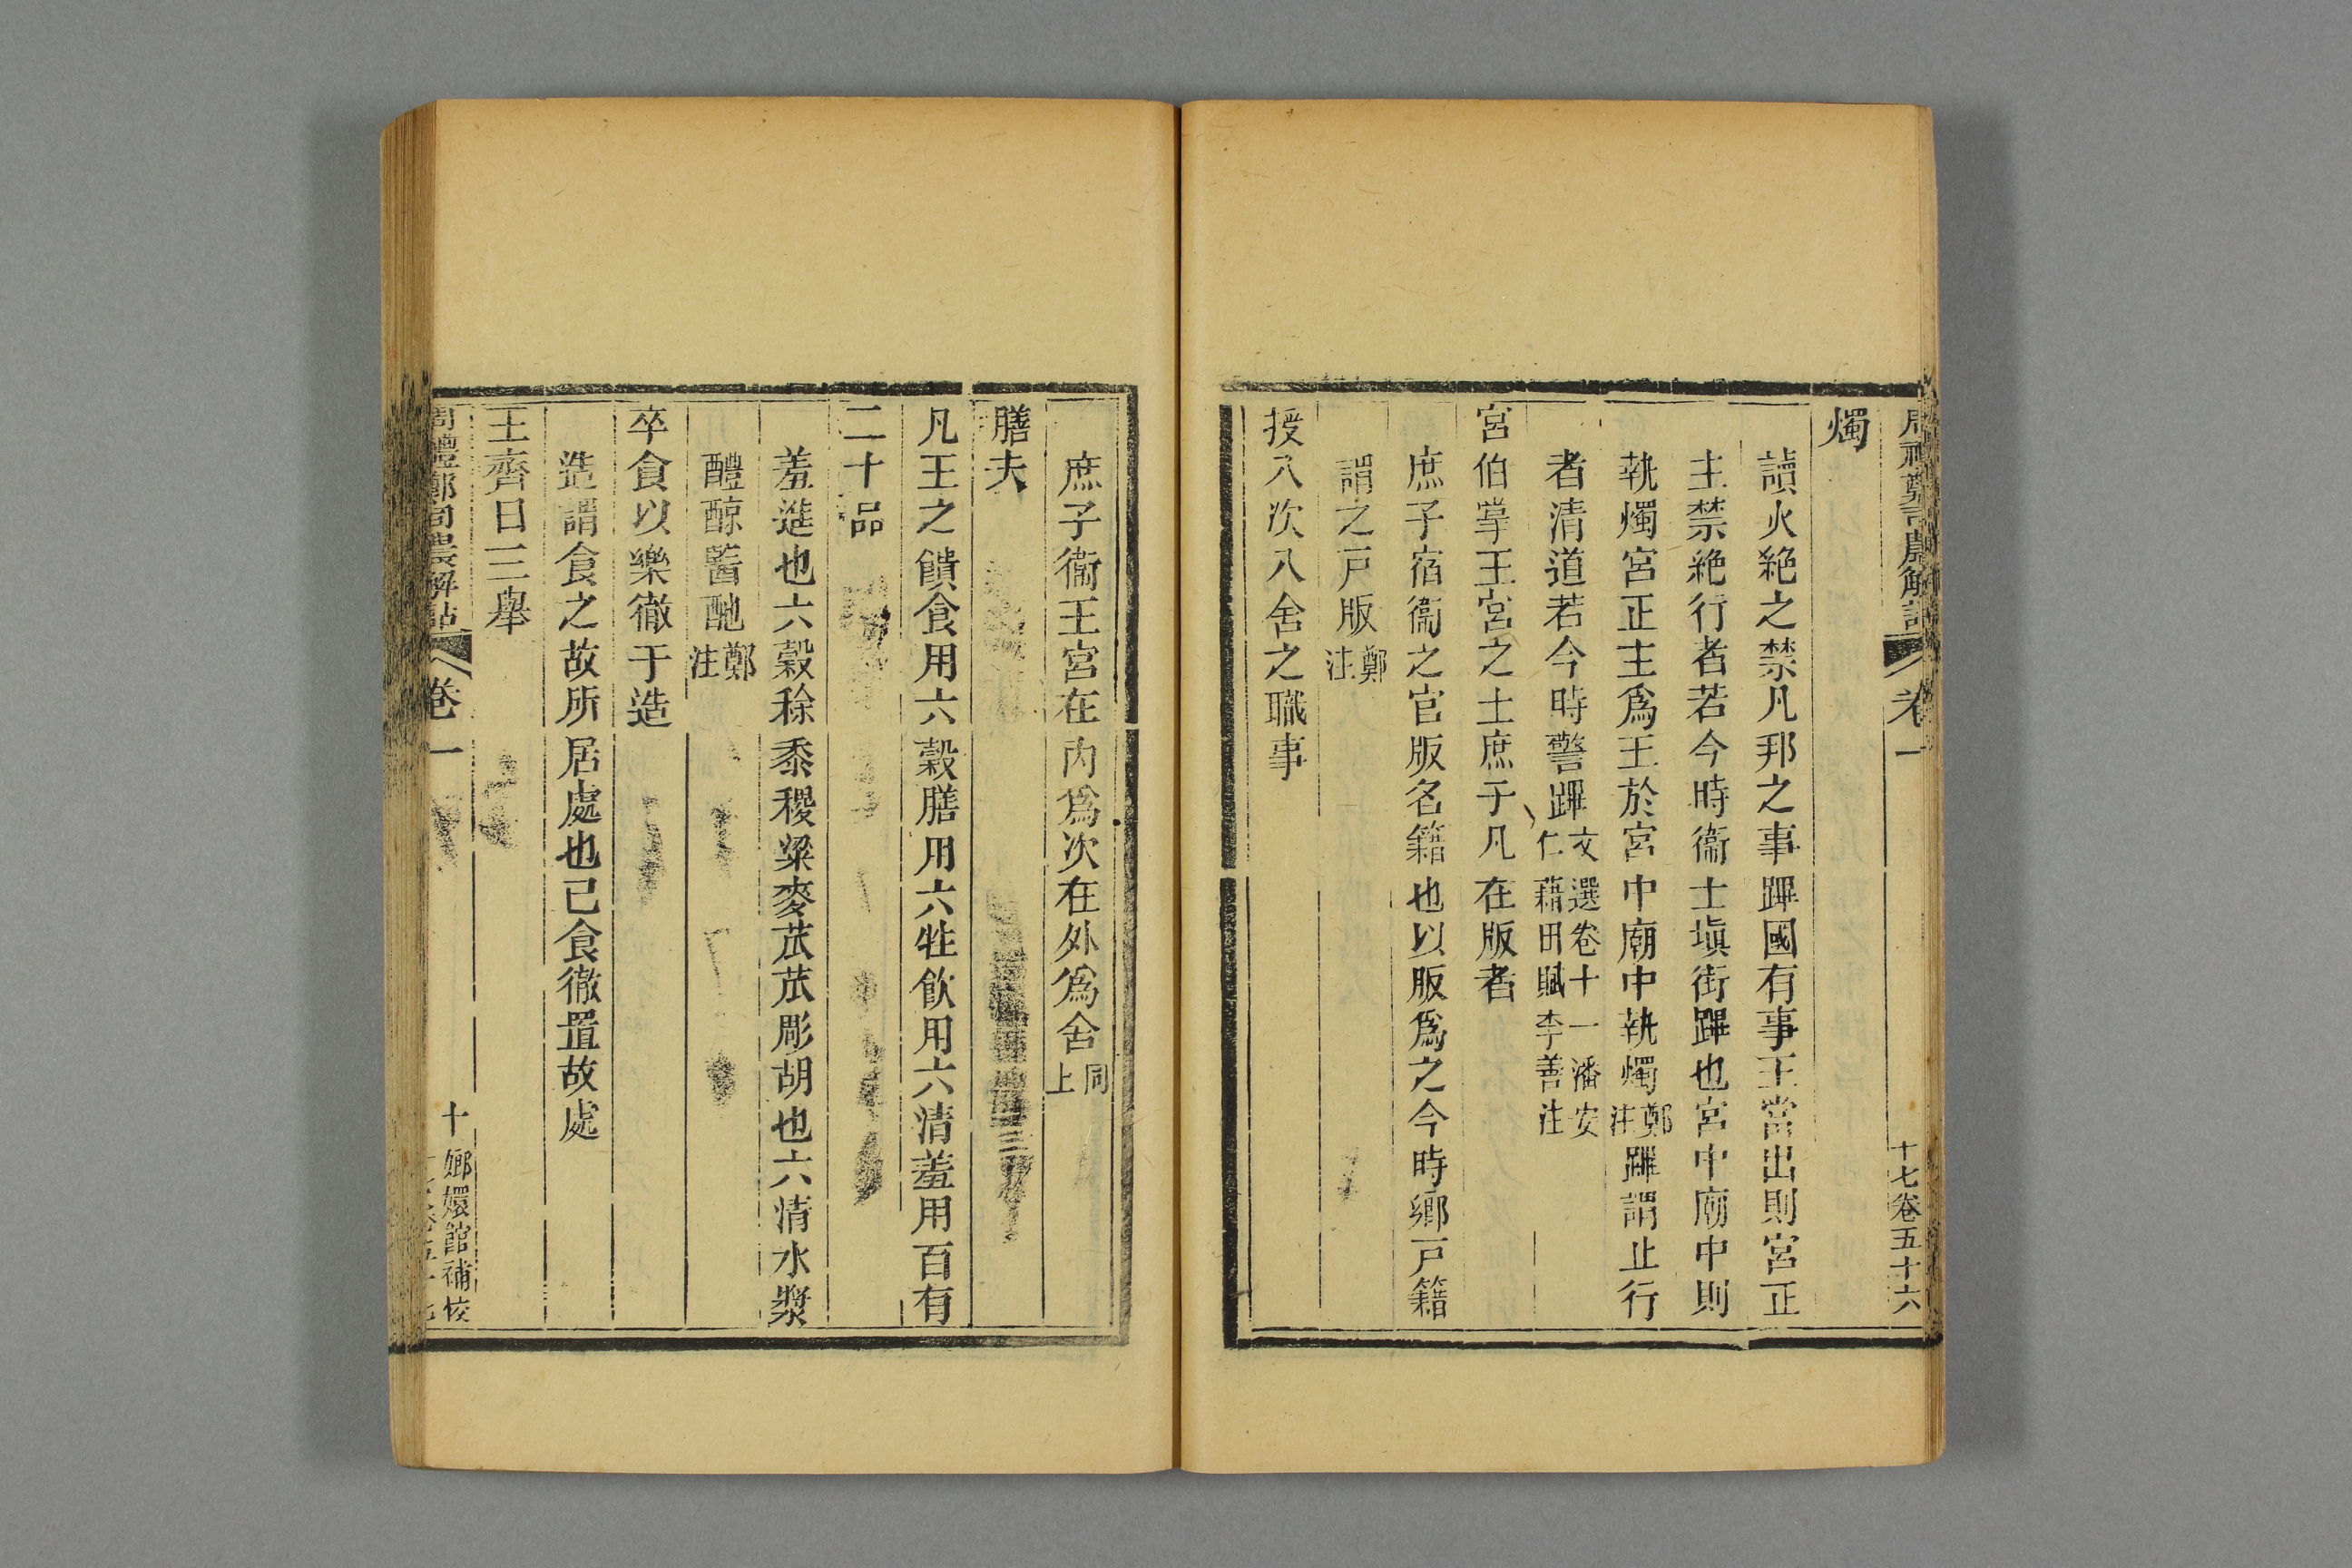 周禮鄭司農解詁 卷一 十七卷五十六
燭
讀火絕之禁凡邦之事蹕國有事王當出則宮正
主禁絕行者若今時衞士塡街蹕也宮中廟中則
執燭宮正主爲王於宮中廟中執燭鄭注蹕謂止行
者清道若今時警蹕文選卷十一潘安仁藉田賦李善注
宮伯掌王宮之士庶子凡在版者
庶子宿衞之官版名籍也以版爲之今時鄉戸籍
謂之戸版鄭注
授八次八舍之職事
庶子衞王宮在內爲次在外爲舍同上
膳夫
凡王之饋食用六穀膳用六牲飮用六清羞用百有
二十品
羞進也六穀稌黍稷粱麥苽苽彫胡也六清水漿
醴䣼醫酏鄭注
卒食以樂徹于造
造謂食之故所居處也已食徹置故處
王齊日三舉
周禮鄭司農解詁 卷一 十 嫏嬛館補校